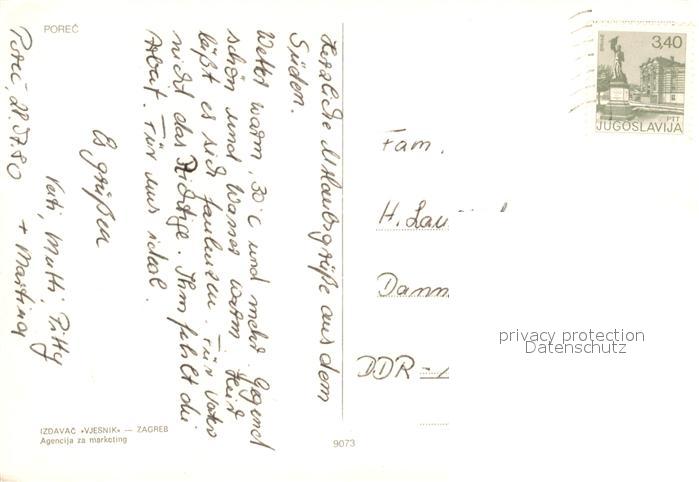 POREČ
Poreč, 28.07.80
Herzliche Urlaubsgrüße aus dem
Süden.
Wetter warm, 30°C und mehr. Gegend
schön und Wasser warm. Hier
läßt es sich faulenzen. Für Vater
nicht das Richtige. Ihm fehlt die
Arbeit. Für uns ideal.
Es grüßen
Vati, Mutti,
+ Martina
IZDAVAČ »VJESNIK« — ZAGREB
Agencija za marketing
9073
3,40
PTT
JUGOSLAVIJA
Fam.
H. Lau
Dann
DDR -
privacy protection
Datenschutz